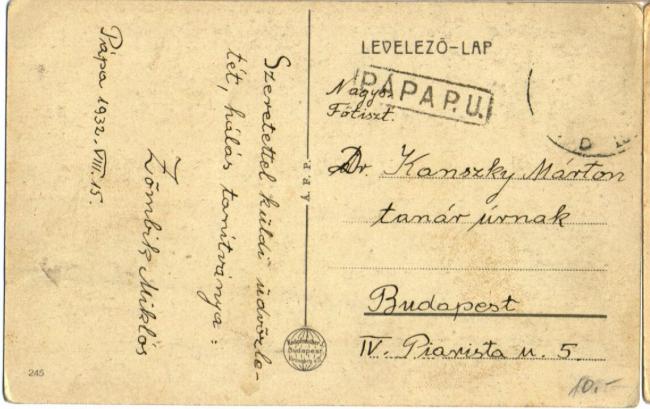 Pápa 1932. VIII. 15.
Szeretettel küldi üdvözle-
tét, hálás tanítványa:
Zömbik Miklós
245
A. F. P.
Budapest
LEVELEZŐ-LAP
PÁPA P.U.
Nagys.
Főtiszt.
Dr. Kanszky Márton
tanár úrnak
Budapest
IV. Piarista u. 5.
10.-
D